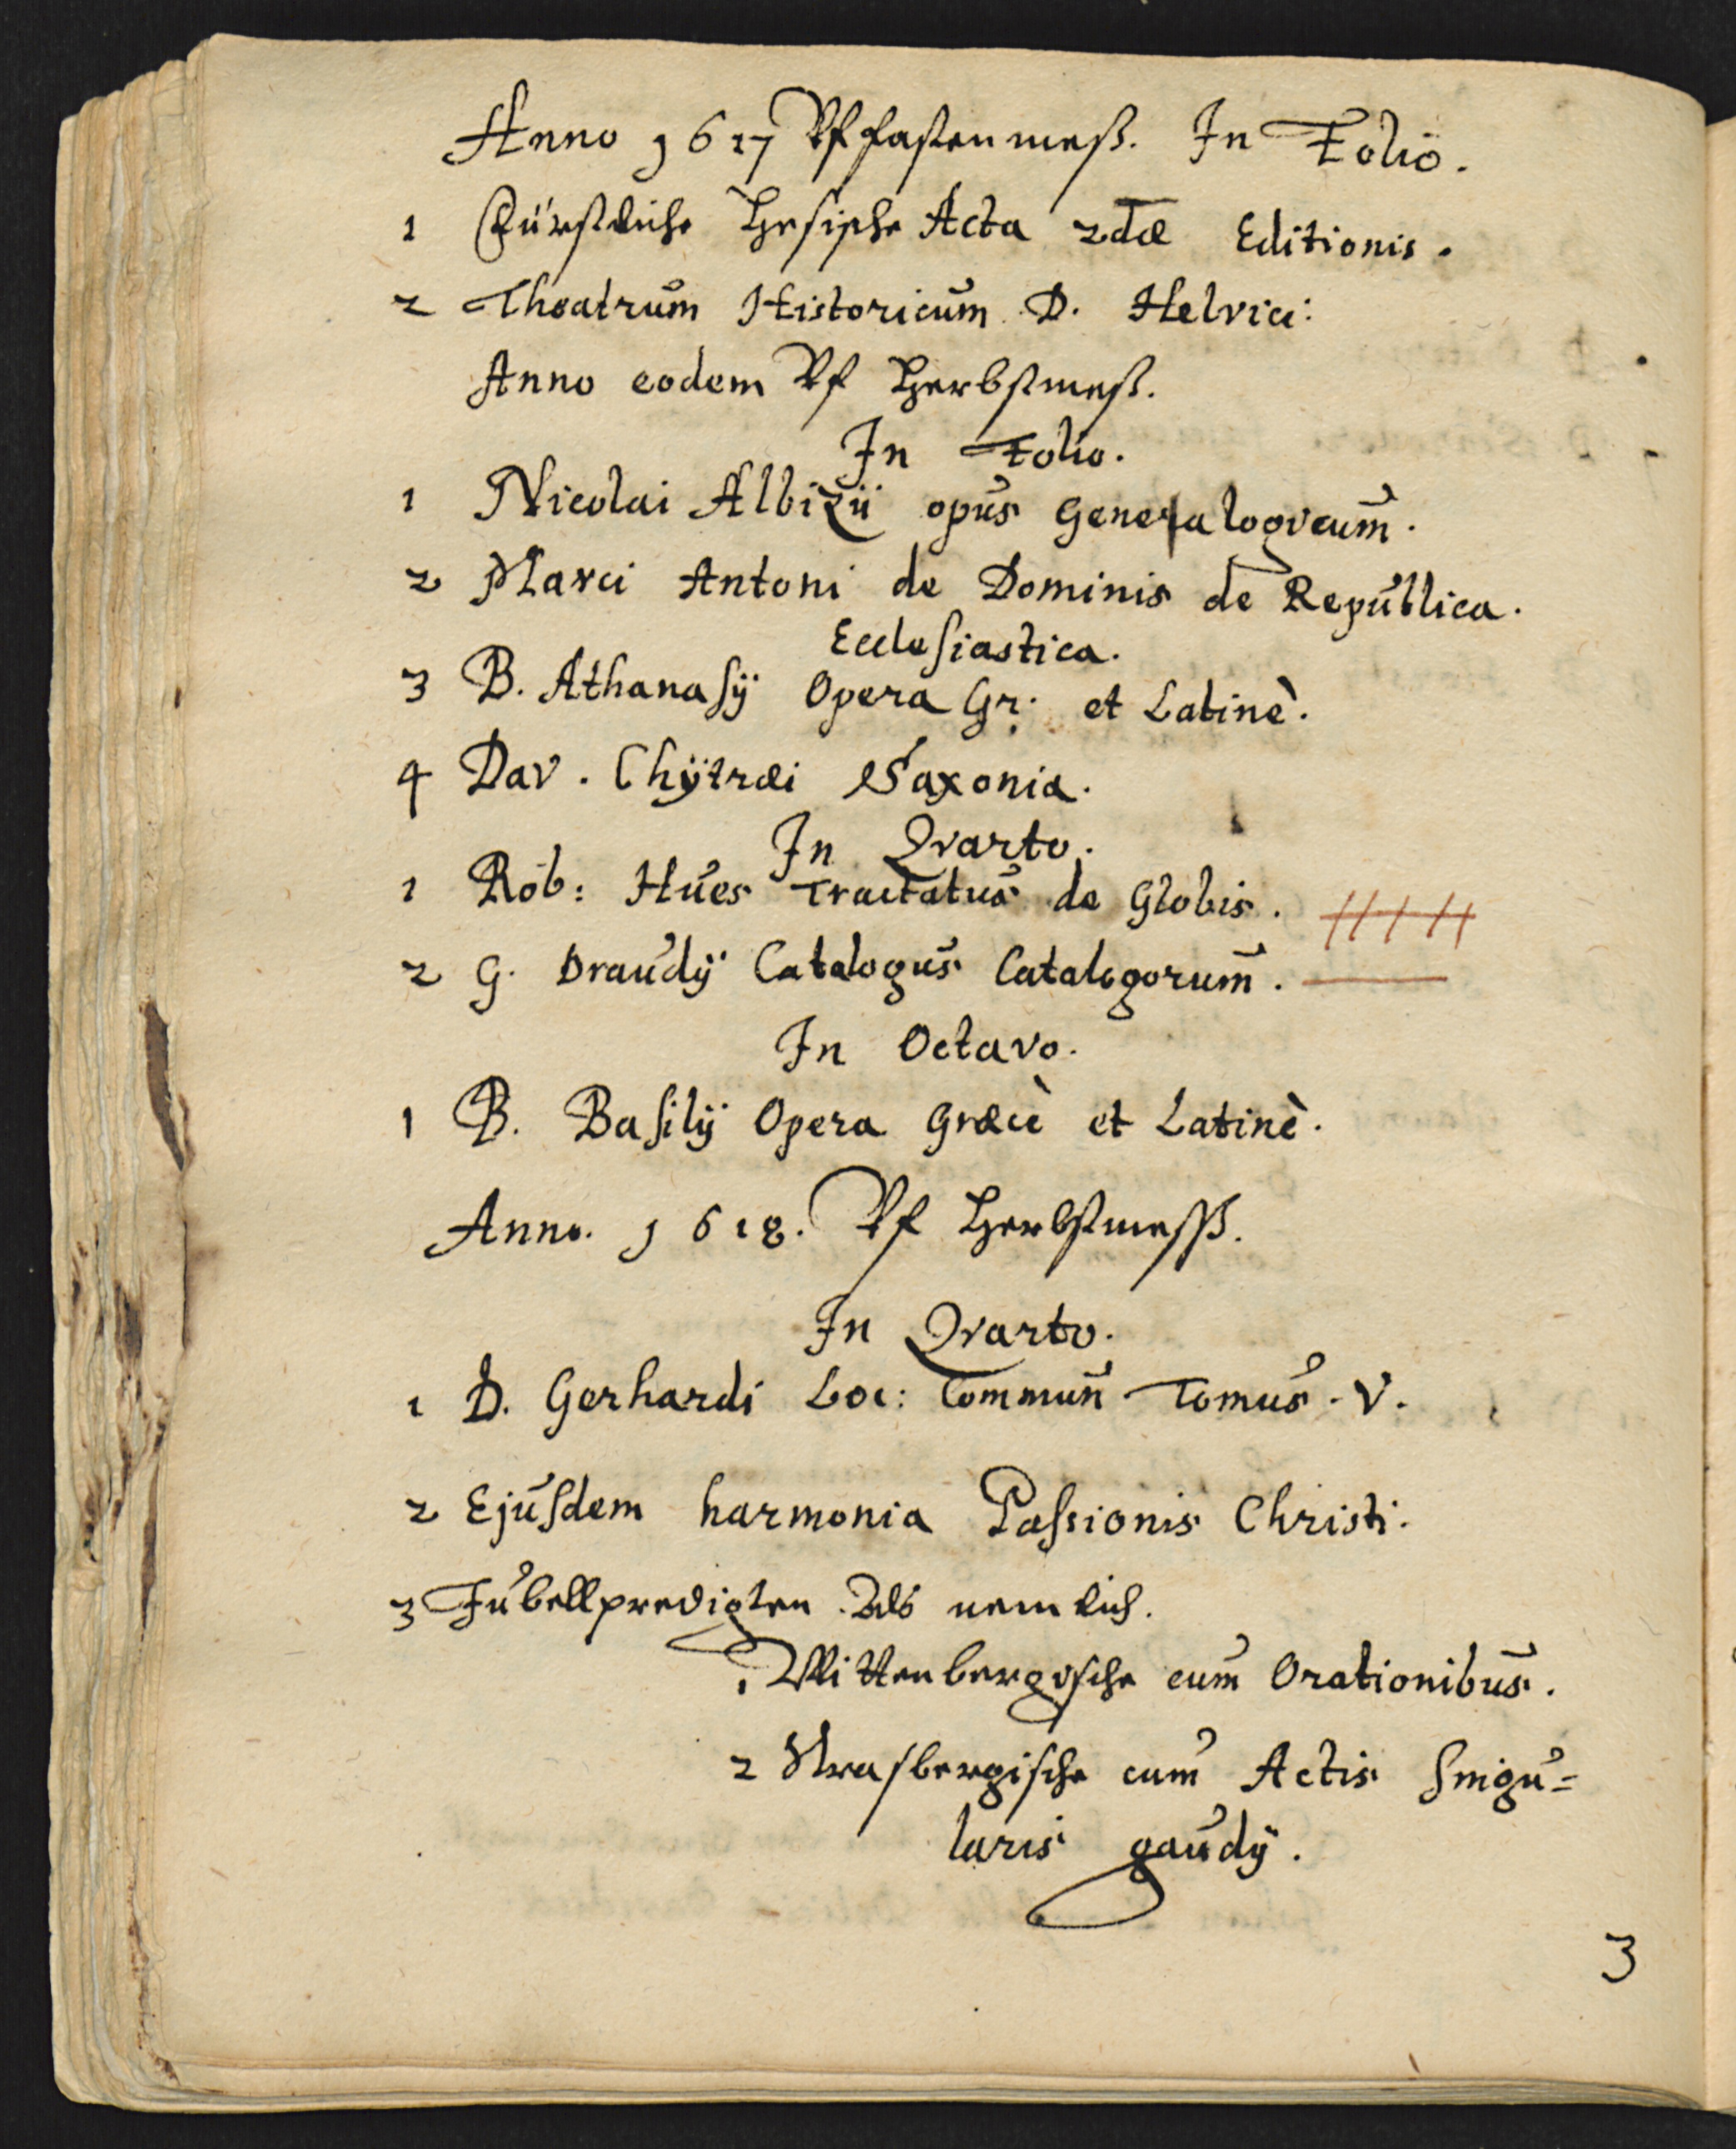 Anno 1617 Vf fastenmeß. In Folio.
1 Fürstliche Hesische Acta 2dæ Editionis.
2 Theatrum Historicum D. Helvici:
Anno eodem Vf Herbstmeß.
In Folio.
1 Nicolai Albizii opus Generalogicum.
2 Marci Antoni de Dominis de Republica.
Ecclesiastica.
3 B. Athanasÿ Opera Gr: et Latinè.
4 Dav. Chÿtræi Saxonia.
In Qvarto.
1 Rob: Hues Tractatus de Globis.
2 G. Draudÿ Catalogus Catalogorum.
In Octavo.
1 B. Basilÿ Opera Græcè et Latinè.
Anno. 1618. Vf Herbstmeß.
In Qvarto.
1 D. Gerhardi Loc: Commun Tomus. V.
2 Ejusdem harmonia Passionis Christi.
3 Jubellpredigten. Als nemlich.
1 Wittenbergische cum Orationibus.
2 Strasbergische cum Actis singu=
laris gaudÿ.
3